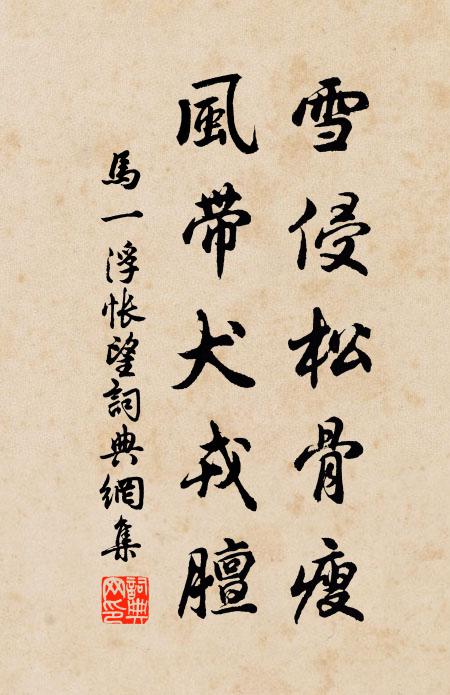 雪侵松骨瘦
風帶犬戎膻
馬一浮悵望詞典網集
詞典網印